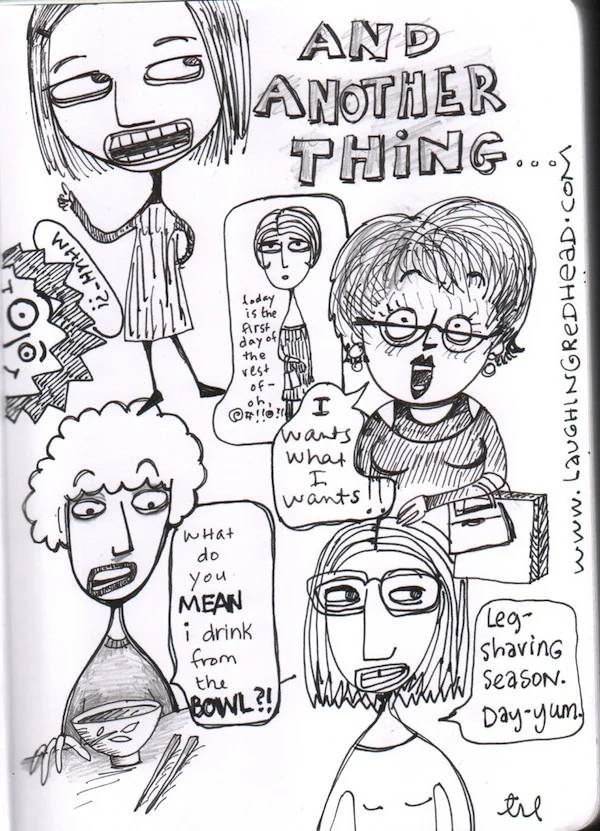 AND
ANOTHER
THING...
www.LAUGHINGREDHEAD.COM
Today
is the
first
day of
the
rest
of-
oh,
@#!!@?!
I
wants
what
I
wants!!
WHAT
do
you
MEAN
i drink
from
the
BOWL?!
Leg-
shaving
season.
Day-yum.